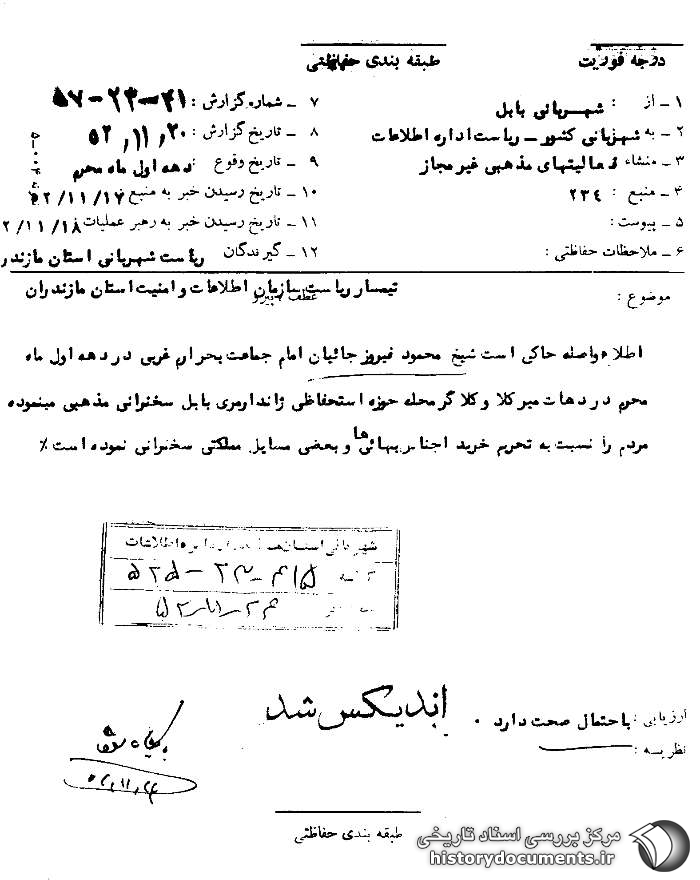 درجه فوریت
طبقه بندی حفاظتی
۱ ـ از : شهربانی بابل
۲ ـ به شهربانی کشور ـ ریاست اداره اطلاعات
۳ ـ منشاء فعالیتهای مذهبی غیر مجاز
۴ ـ منبع : ۲۳۴
۵ ـ پیوست :
۶ ـ ملاحظات حفاظتی :
۷ ـ شماره گزارش : ۴۱-۲۳-۵۷
۸ ـ تاریخ گزارش : ۵۲,۱۱,۲۰
۹ ـ تاریخ وقوع : دهه اول ماه محرم
۱۰ ـ تاریخ رسیدن خبر به منبع ۵۲/۱۱/۱۷
۱۱ ـ تاریخ رسیدن خبر به رهبر عملیات ۲/۱۱/۱۸
۱۲ ـ گیرندگان ریاست شهربانی استان مازندرا
تیمسار ریاست سازمان اطلاعات و امنیت استان مازندران
موضوع :
عطف / پیرو
اطلاع واصله حاکی است شیخ محمود فیروزجائیان امام جماعت بحرارم غربی در دهه اول ماه
محرم در دهات میرکلا و کلاگر محله حوزه استحفاظی ژاندارمری بابل سخنرانی مذهبی مینموده
مردم را نسبت به تحریم خرید اجناس بهائی‌ها و بعضی مسایل مملکتی سخنرانی نموده است ٪
شهربانی استان اطلاعات
۴۱۵-۲۳-۵۲۵
۵۲-۱۱-۲۴
ارزیابی : باحتمال صحت دارد .
نظریه :
اندیکس شد
بایگانی شود
۵۲,۱۱,۲۴
طبقه بندی حفاظتی
مرکز بررسی اسناد تاریخی
historydocuments.ir